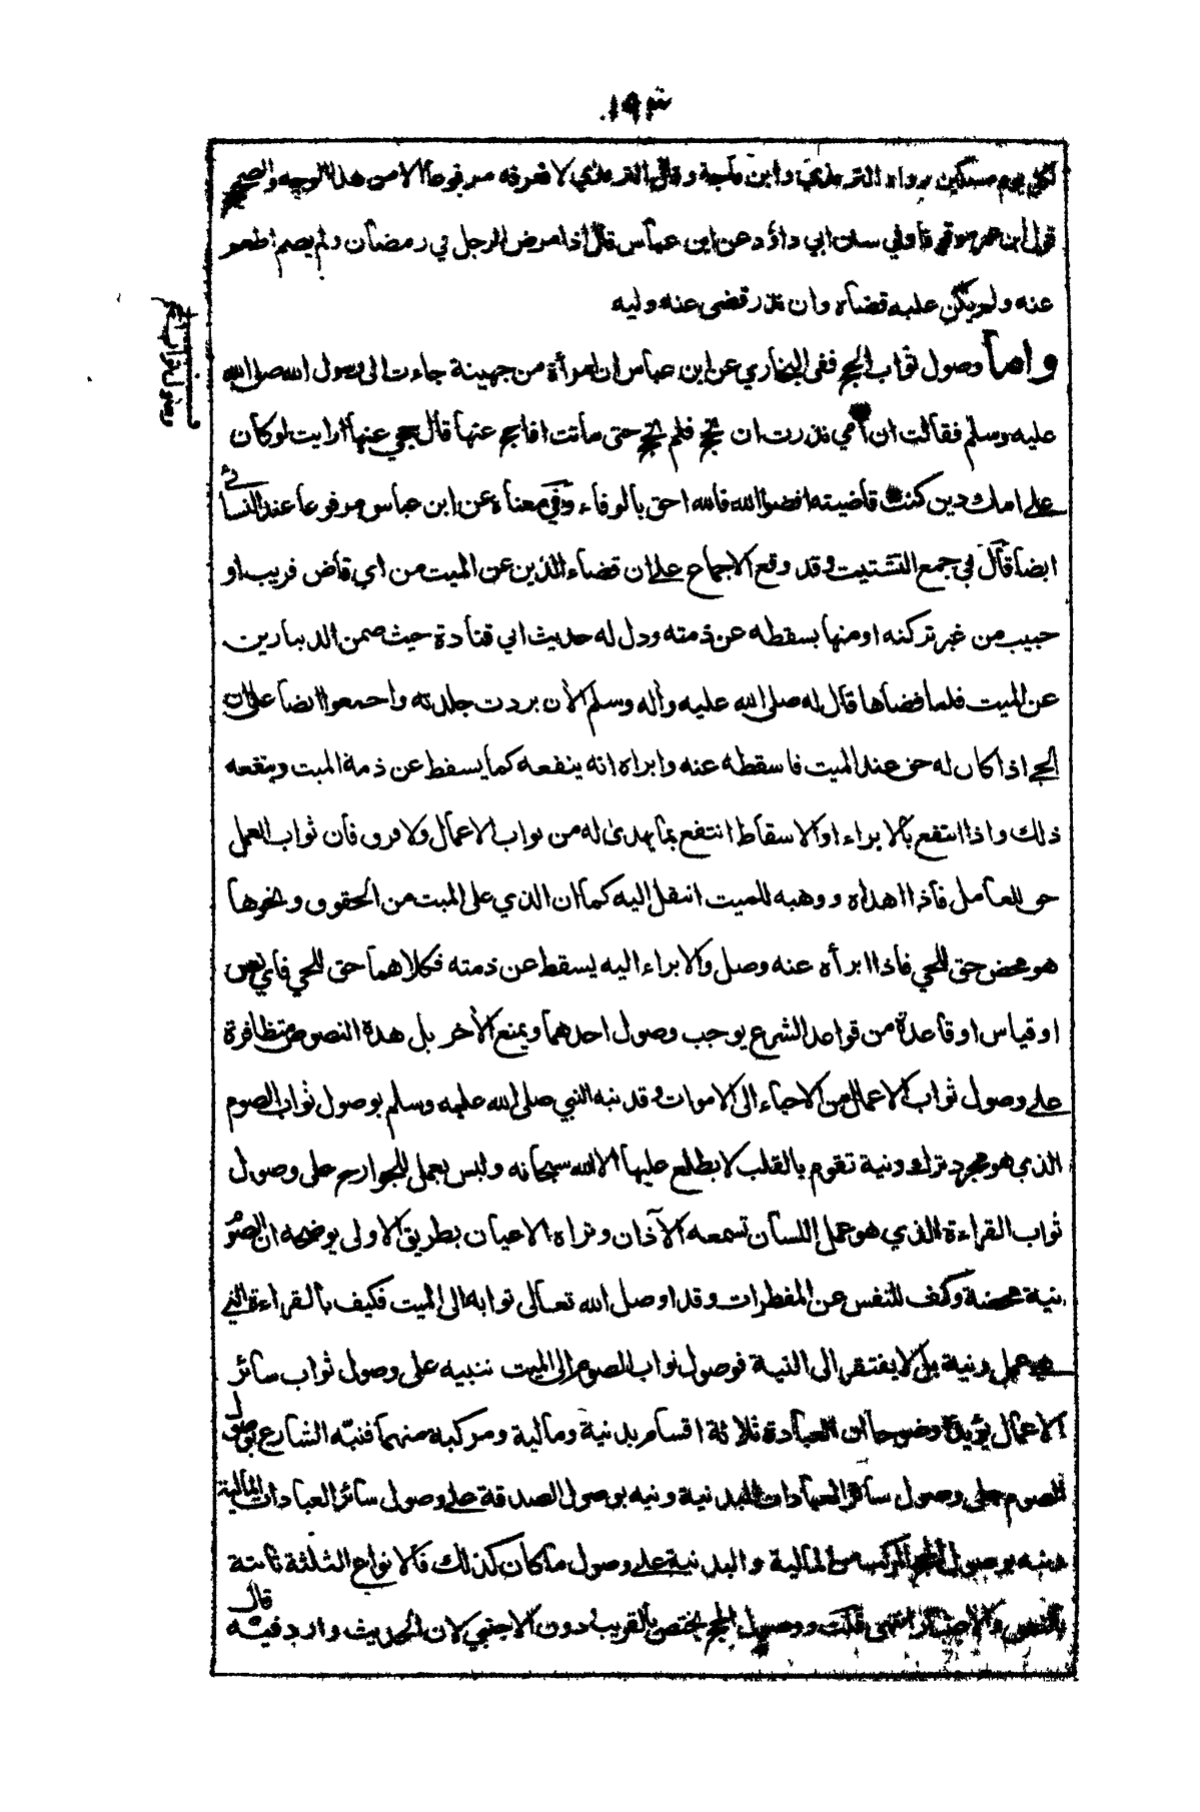 ١٩٣
لكل يوم مسكين رواه الترمذي وابن ماجة وقال الترمذي لا نعرفه مرفوعا الا من هذا الوجه والصحيح
قول ابن عمر موقوفا وفي سنن ابي داؤد عن ابن عباس قال اذا مرض الرجل في رمضان ولم يصم اطعم
عنه ولم يكن عليه قضاء وان نذر قضى عنه وليه
واما وصول ثواب الحج ففى البخاري عن ابن عباس ان امرأة من جهينة جاءت الى رسول الله صلى الله
عليه وسلم فقالت ان امي نذرت ان تحج فلم تحج حتى ماتت افاحج عنها قال حجي عنها ارايت لو كان
على امك دين كنت قاضيته اقضوا الله فالله احق بالوفاء وفي معناه عن ابن عباس مرفوعا عند النسائي
ايضا قال في جمع التشتيت وقد وقع الاجماع على ان قضاء الدين عن الميت من اي قاض قريب او
حبيب من غير تركته او منها يسقطه عن ذمته ودل له حديث ابي قتادة حيث ضمن الدينارين
عن الميت فلما قضاها قال له صلى الله عليه واله وسلم الأن بردت جلدته واجمعوا ايضا على ان
الحي اذا كان له حق عند الميت فاسقطه عنه وابراه انه ينفعه كما يسقط عن ذمة الميت وينفعه
ذلك واذا انتفع بالابراء او الاسقاط انتفع بما يهدى له من ثواب الاعمال ولا فرق فان ثواب العمل
حق للعامل فاذا اهداه ووهبه للميت انتقل اليه كما ان الذي على الميت من الحقوق ونحوها
هو محض حق للحي فاذا ابرأه عنه وصل والابراء اليه يسقط عن ذمته فكلاهما حق للحي فاي نص
او قياس او قاعدة من قواعد الشرع يوجب وصول احدهما ويمنع الأخر بل هذه النصوص متظافرة
على وصول ثواب الاعمال من الاحياء الى الاموات وقد نبه النبي صلى الله عليه وسلم بوصول ثواب الصوم
الذي هو مجرد ترك ونية تقوم بالقلب لا يطلع عليها الا الله سبحانه وليس بعمل للجوارح على وصول
ثواب القراءة الذي هو عمل اللسان تسمعه الآذان وتراه الاعيان بطريق الاولى يوضحه ان الصوم
نية محضة وكف للنفس عن المفطرات وقد اوصل الله تعالى ثوابه الى الميت فكيف بالقراءة التي
هو عمل ونية بل لا يفتقر الى النية فوصول ثواب الصوم الى الميت تنبيه على وصول ثواب سائر
الاعمال يؤيده وضوحا ان العبادة ثلاثة اقسام بدنية ومالية ومركبة منهما فنبّه الشارع بوصول
الصوم على وصول سائر العبادات البدنية ونبه بوصول الصدقة على وصول سائر العبادات المالية
ونبه بوصول الحج المركب من المالية والبدنية على وصول ما كان كذلك فالانواع الثلثة ثابتة
بالنص والاعتبار انتهى قلت ووصول الحج يختص بالقريب دون الاجنبي لان الحديث وارد فيه قال
وصول ثواب